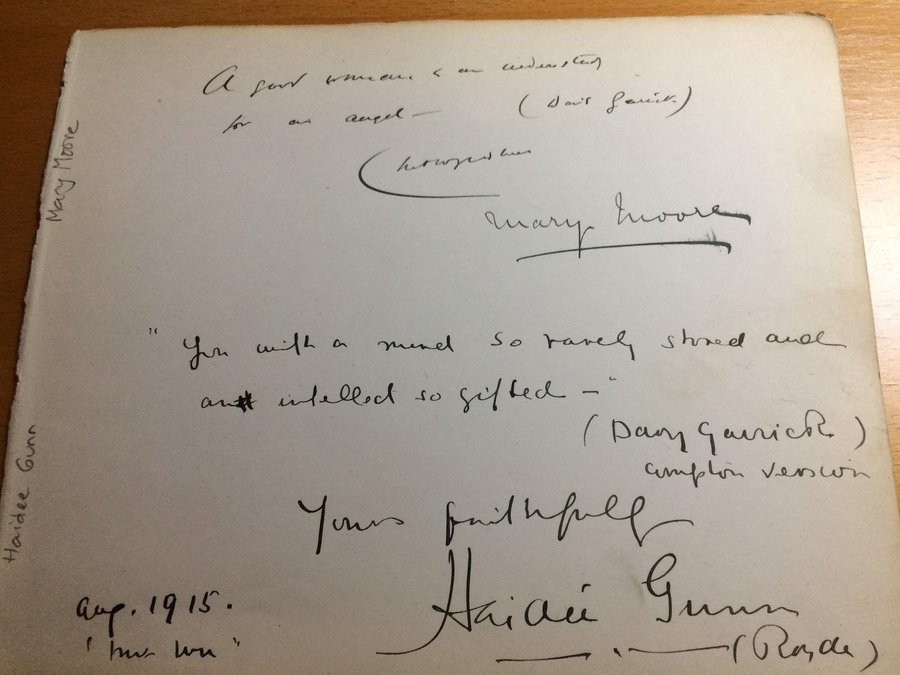 A good woman is an understudy
for an angel — (David Garrick)
Mary Moore
"You with a mind so rarely stored and
an intellect so gifted —"
(Davy Garrick)
Compton version
Yours faithfully
Haidée Gunn
Aug. 1915.
Mary Moore
Haidee Gunn